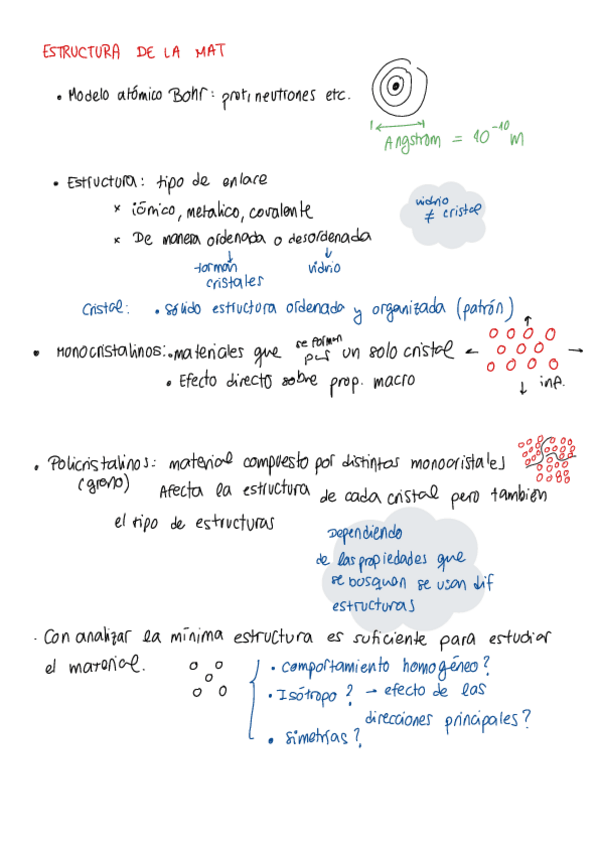 ESTRUCTURA DE LA MAT
• Modelo atómico Bohr: prot, neutrones etc.
Angstrom = 10⁻¹⁰ m
• Estructura: tipo de enlace
× iómico, metalico, covalente
vidrio
≠ cristal
× De manera ordenada o desordenada
↓ ↓
forman vidrio
cristales
Cristal: • sólido estructura ordenada y organizada (patrón)
• Monocristalinos: • materiales que se forman por un solo cristal
• Efecto directo sobre prop. macro
inf.
• Policristalinos: material compuesto por distintas monocristales
(grano) Afecta la estructura de cada cristal pero también
el tipo de estructuras
Dependiendo
de las propiedades que
se busquan se usan dif
estructuras
· Con analizar la mínima estructura es suficiente para estudiar
el material.
• comportamiento homogéneo?
• Isótropo? → efecto de las
direcciones principales?
• simetrías?